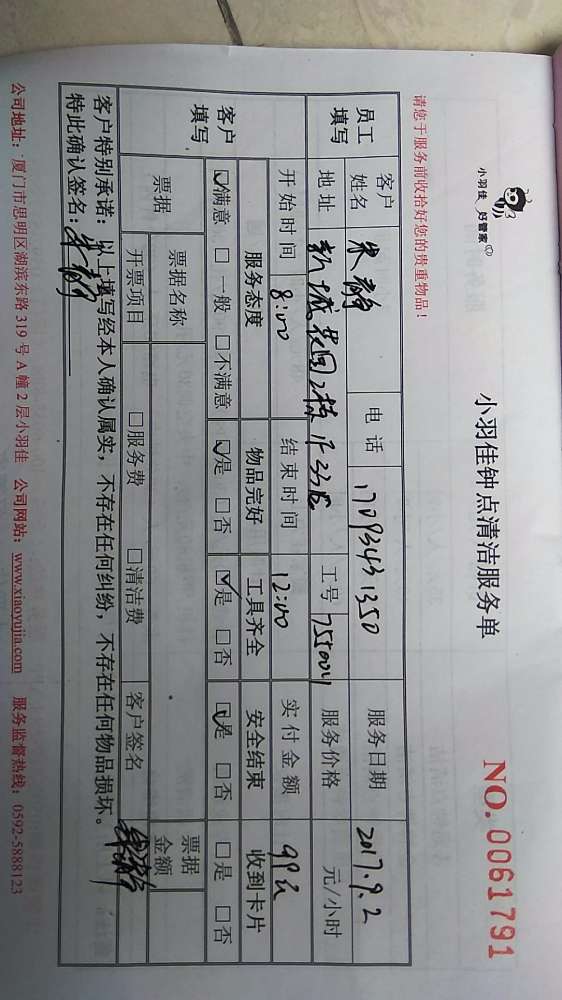 小羽佳 好管家
小羽佳钟点清洁服务单
NO.0061791
请您于服务前收拾好您的贵重物品！
员工填写 客户姓名 朱静 电话 17093431350 服务日期 2017.9.2
地址 新城花园2栋 工号 服务价格 元/小时
开始时间 8:00 结束时间 12:00 实付金额
客户填写 服务态度 物品完好 工具齐全 安全结束 收到卡片
☑满意 □一般 □不满意 ☑是 □否 ☑是 □否 ☑是 □否 □是 □否
票据 票据名称 □服务费 □清洁费 客户签名 票据金额
开票项目
客户特别承诺：以上填写经本人确认属实，不存在任何纠纷，不存在任何物品损坏。
特此确认签名：朱静
公司地址：厦门市思明区湖滨东路 319 号 A 幢 2 层小羽佳 公司网站：www.xiaoyujia.com 服务监督热线：0592-5888123